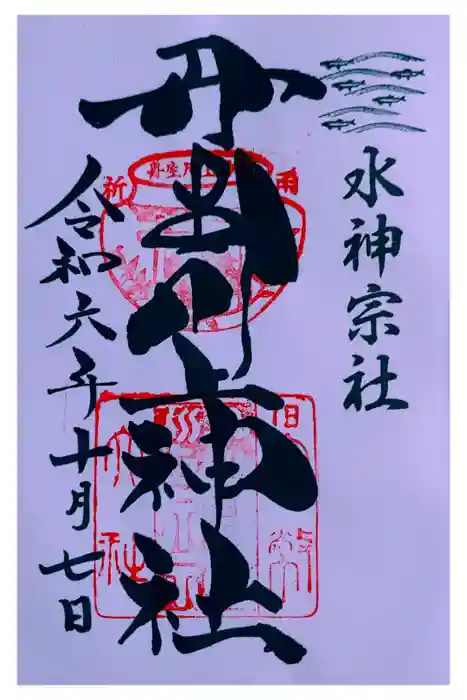 水神宗社
丹生川上神社
令和六年十月七日
祈
雨